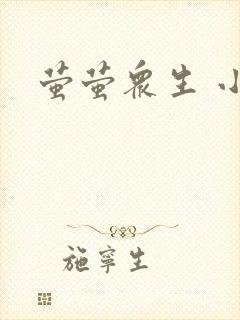 萤萤众生 小
施宁生